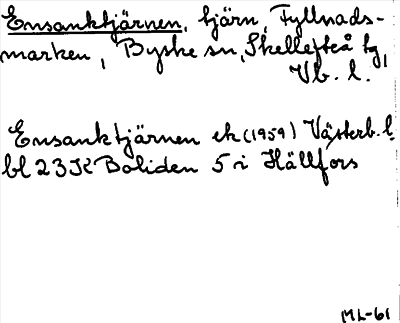 Ensanktjärnen, tjärn, Fyllnads-
marken, Byske sn, Skellefteå tg,
Vb. l.
Ensanktjärnen ek (1959) Västerb. l.
bl 23K Boliden 5 i Hällfors
ML-61